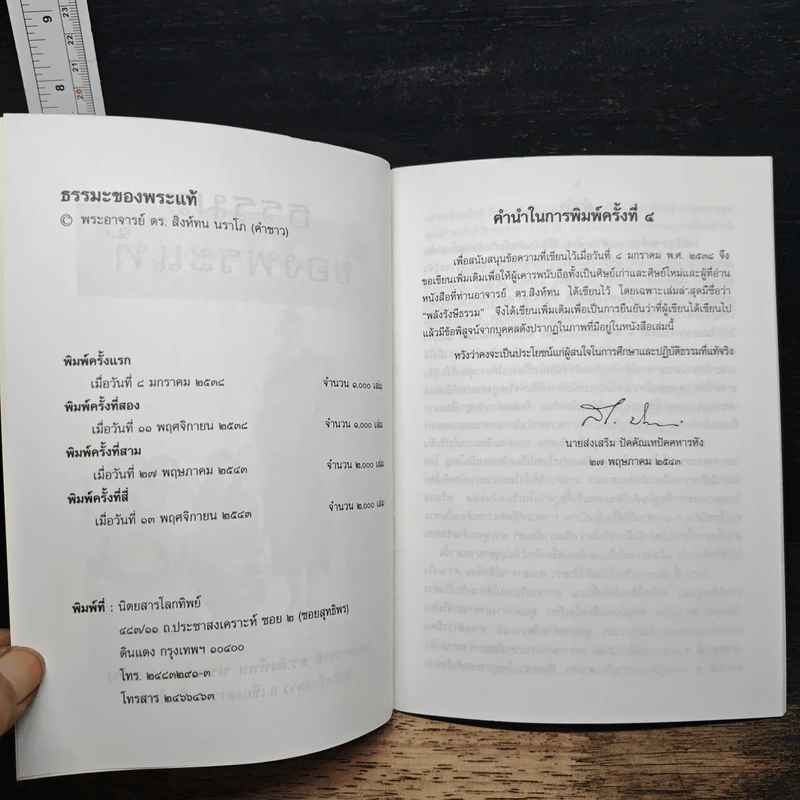 ธรรมะของพระแท้
© พระอาจารย์ ดร. สิงห์ทน นราโภ (คำซาว)
พิมพ์ครั้งแรก
เมื่อวันที่ ๘ มกราคม ๒๕๓๘ จำนวน ๑,๐๐๐ เล่ม
พิมพ์ครั้งที่สอง
เมื่อวันที่ ๑๑ พฤศจิกายน ๒๕๓๘ จำนวน ๑,๐๐๐ เล่ม
พิมพ์ครั้งที่สาม
เมื่อวันที่ ๒๗ พฤษภาคม ๒๕๔๓ จำนวน ๒,๐๐๐ เล่ม
พิมพ์ครั้งที่สี่
เมื่อวันที่ ๑๓ พฤศจิกายน ๒๕๔๓ จำนวน ๒,๐๐๐ เล่ม
พิมพ์ที่ : นิตยสารโลกทิพย์
๔๘๓/๑๑ ถ.ประชาสงเคราะห์ ซอย ๒ (ซอยสุทธิพร)
ดินแดง กรุงเทพฯ ๑๐๔๐๐
โทร. ๒๔๘๓๒๙๑-๓
โทรสาร ๒๔๖๖๔๖๓
คำนำในการพิมพ์ครั้งที่ ๔
เพื่อสนับสนุนข้อความที่เขียนไว้เมื่อวันที่ ๘ มกราคม พ.ศ. ๒๕๓๘ จึง
ขอเขียนเพิ่มเติมเพื่อให้ผู้เคารพนับถือทั้งเป็นศิษย์เก่าและศิษย์ใหม่และผู้ที่อ่าน
หนังสือที่ท่านอาจารย์ ดร.สิงห์ทน ได้เขียนไว้ โดยเฉพาะเล่มล่าสุดมีชื่อว่า
"พลังรังษีธรรม" จึงได้เขียนเพิ่มเติมเพื่อเป็นการยืนยันว่าที่ผู้เขียนได้เขียนไป
แล้วมีข้อพิสูจน์จากบุคคลดังปรากฏในภาพที่มีอยู่ในหนังสือเล่มนี้
หวังว่าคงจะเป็นประโยชน์แก่ผู้สนใจในการศึกษาและปฏิบัติธรรมที่แท้จริง
นายส่งเสริม ปัคคัณเทปัคคหารทัง
๒๗ พฤษภาคม ๒๕๔๓
9
23
22
21
20
8